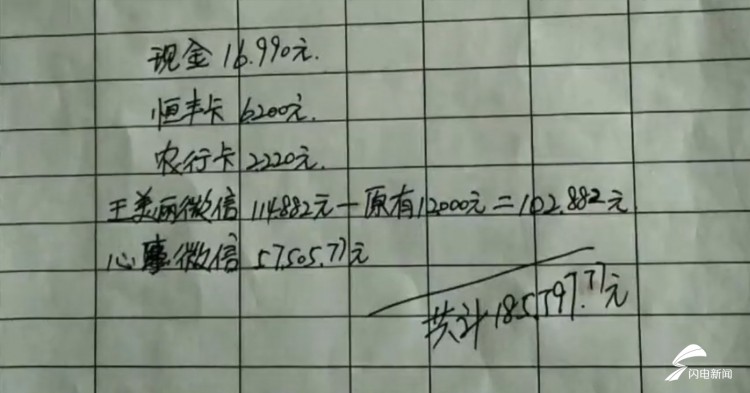 现金 16.990元.
恒丰卡 6200元.
农行卡 2220元.
王美丽微信 114882元－原有12000元=102.882元
心事微信 57.505.77元
共计185797.77元
闪电新闻